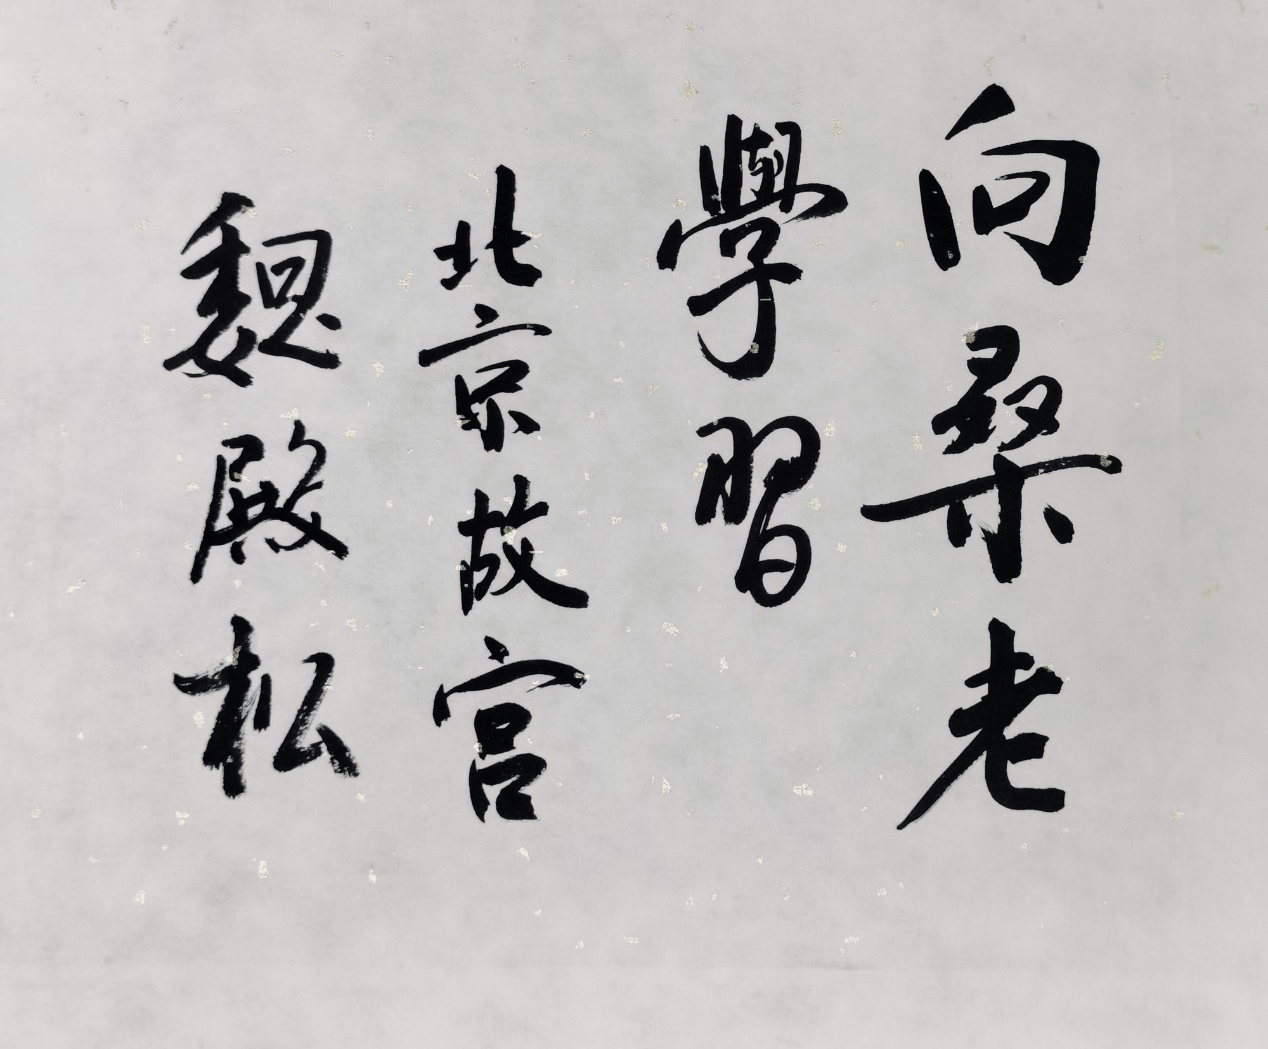 向桑老
學習
北京故宫
魏殿松